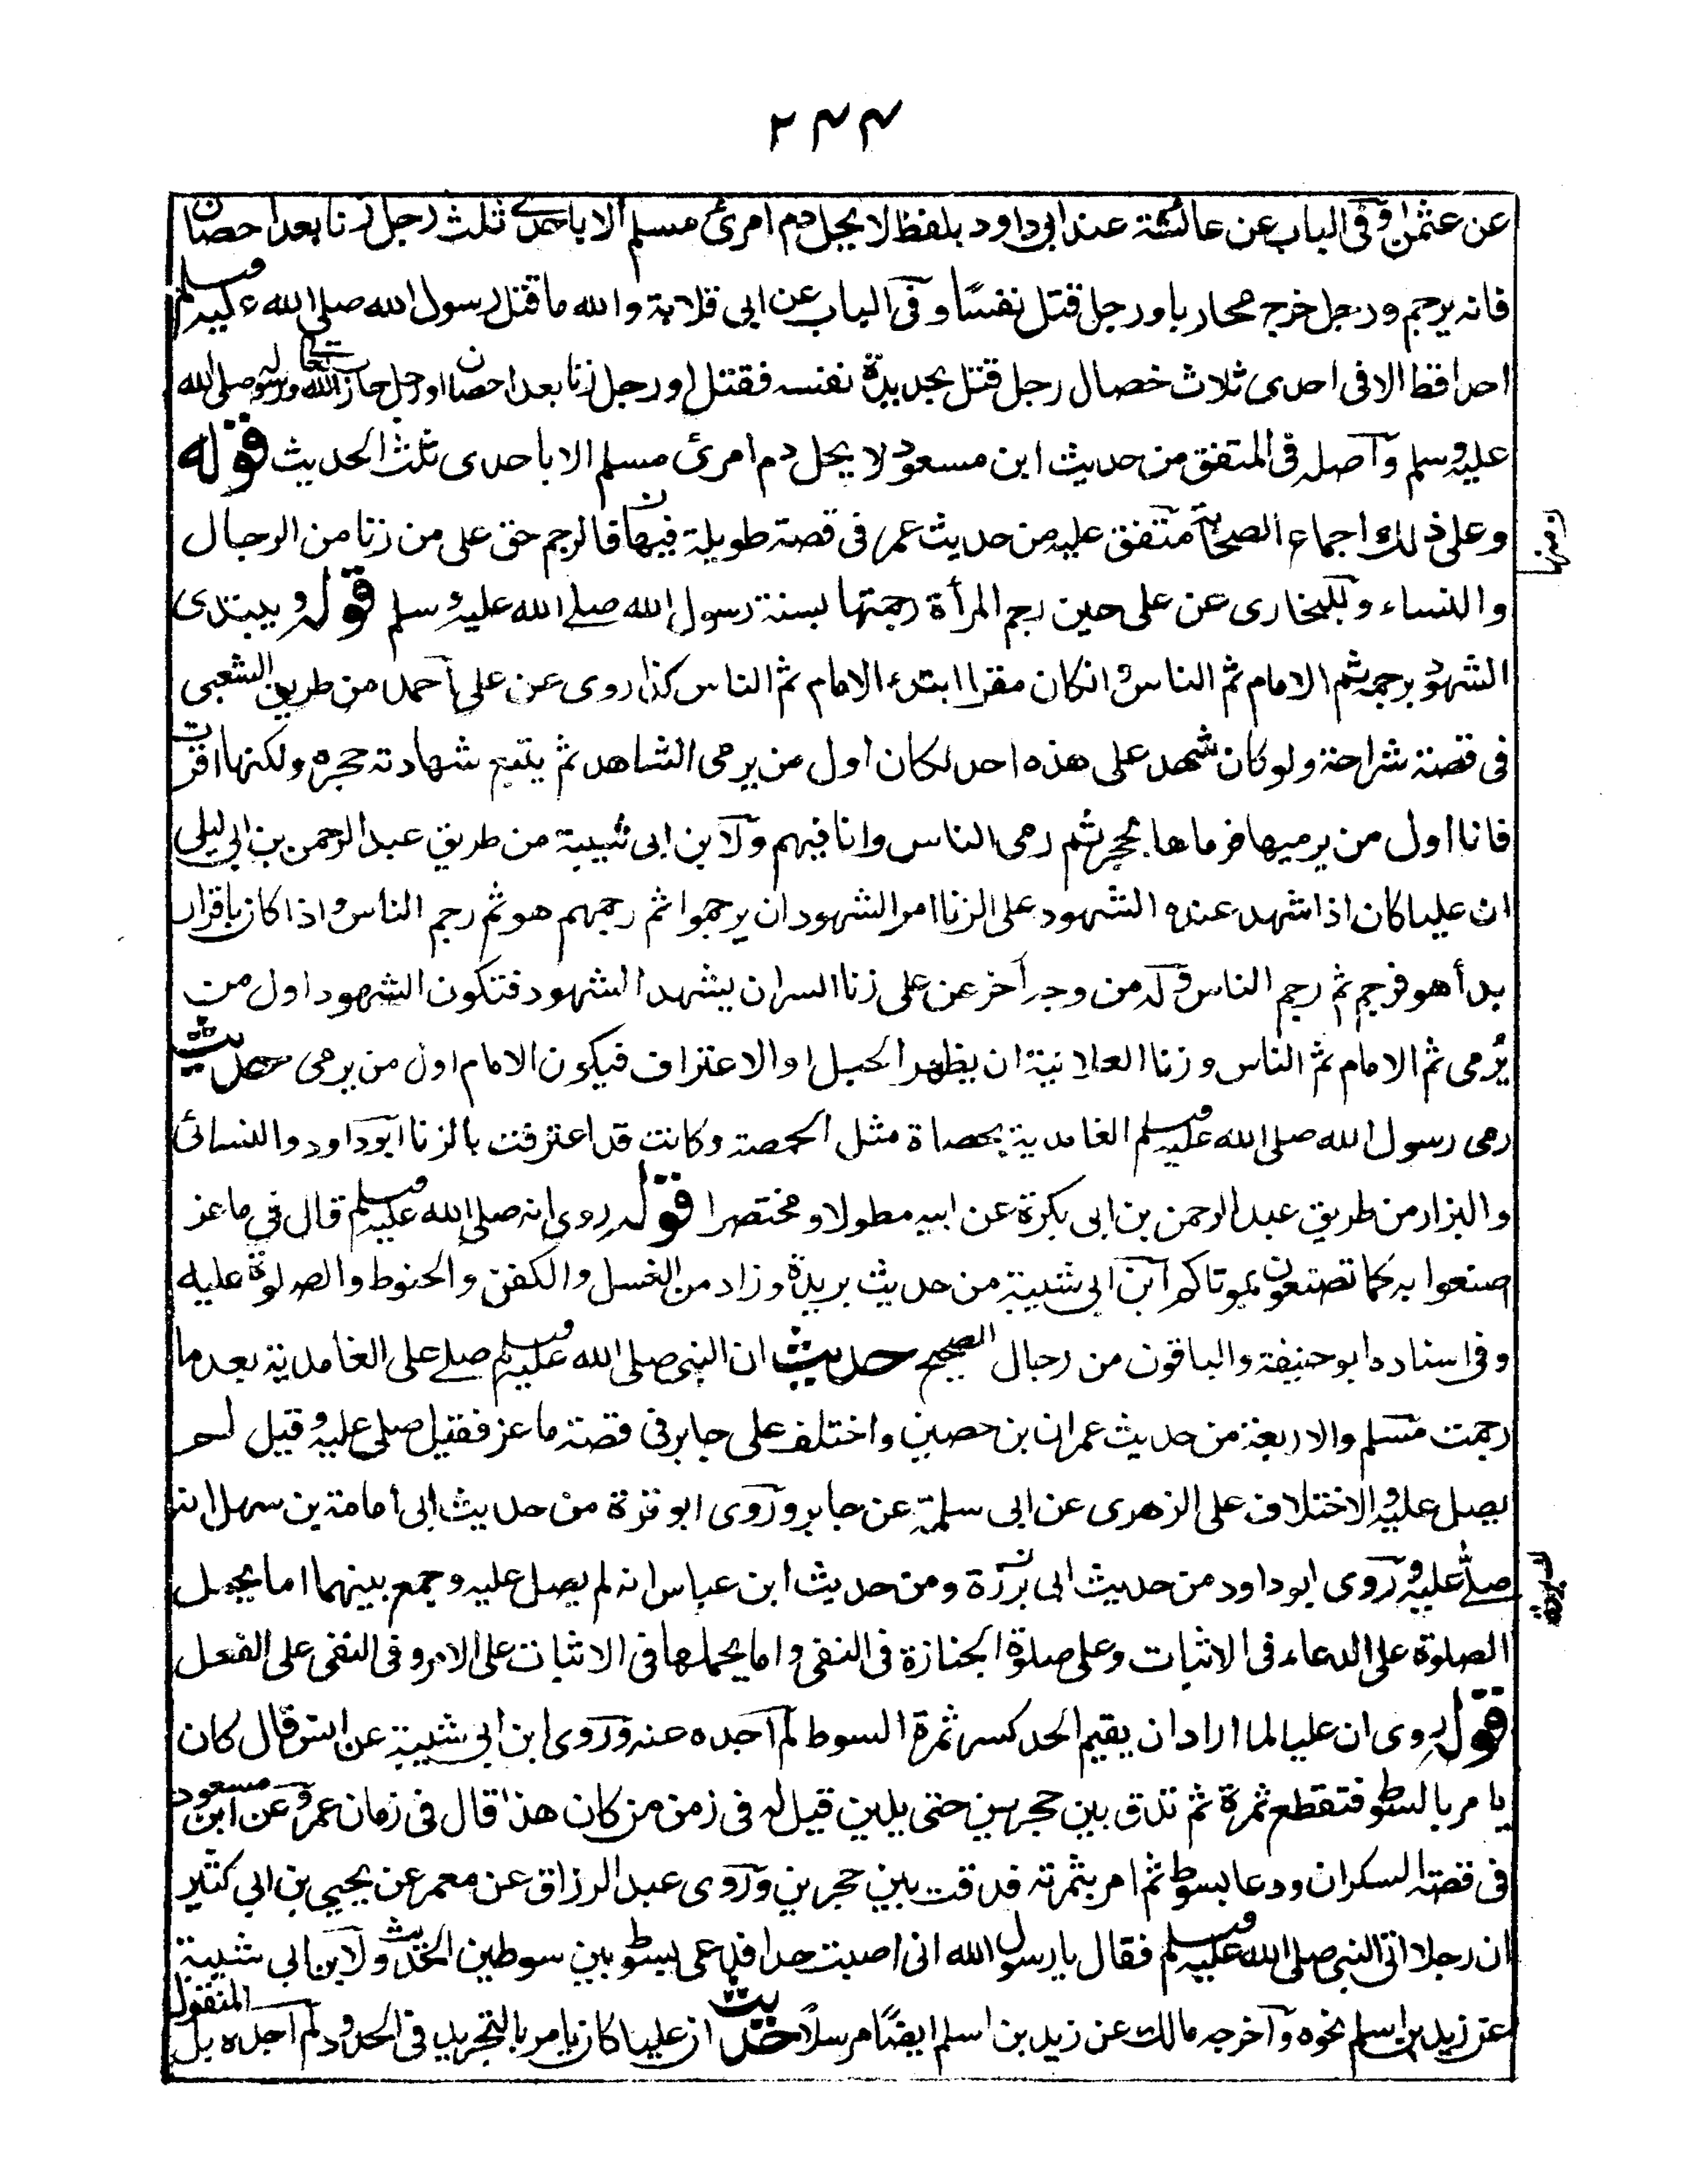 ٢٤٤
عن عثمن وفى الباب عن عائشة عند ابى داود بلفظ لا يحل دم امرئ مسلم الا باحدى ثلث رجل زنا بعد احصان
فانه يرجم ورجل خرج محاربا ورجل قتل نفسًا وفى الباب عن ابى قلابة والله ما قتل رسول الله صلى الله عليه وسلم
احدا قط الا فى احدى ثلاث خصال رجل قتل بجريرة نفسه فقتل او رجل زنا بعد احصان او رجل حارب الله ورسوله صلى الله
عليه وسلم وآصله فى المتفق من حديث ابن مسعود لا يحل دم امرئ مسلم الا باحدى ثلث الحديث قوله
وعلى ذلك اجماع الصحابة متفق عليه من حديث عمر فى قصة طويلة فيها قال الرجم حق على من زنا من الرجال
والنساء وللبخارى عن على حين رجم المرأة رجمتها بسنة رسول الله صلى الله عليه وسلم قوله ويبتدى
الشهود برجمه ثم الامام ثم الناس وانكان مقرا ابتدء الامام ثم الناس كذا روى عن على آحمد من طريق الشعبى
فى قصة شراحة ولو كان شهد على هذه احد لكان اول من يرمى الشاهد ثم يتبع شهادته حجره ولكنها اقرت
فانا اول من يرميها فرماها بحجر ثم رمى الناس وانا فيهم ولآبن ابى شيبة من طريق عبد الرحمن بن ابى ليلى
ان عليا كان اذا شهد عنده الشهود على الزنا امر الشهود ان يرجموا ثم رجمهم هو ثم رجم الناس واذا كان باقرار
بدأ هو فرجم ثم رجم الناس وله من وجه آخر عن على زنا السر ان يشهد الشهود فتكون الشهود اول من
يُرمى ثم الامام ثم الناس وزنا العلانية ان يظهر الحبل او الاعتراف فيكون الامام اول من يرمى حديث
رمى رسول الله صلى الله عليه وسلم الغامدية بحصاة مثل الحمصة وكانت قد اعترفت بالزنا ابوداود والنسائى
والبزار من طريق عبد الرحمن بن ابى بكرة عن ابيه مطولا ومختصرا قوله روى انه صلى الله عليه وسلم قال فى ماعز
اصنعوا به كما تصنعون بموتاكم آبن ابى شيبة من حديث بريدة وزاد من الغسل والكفن والحنوط والصلوة عليه
وفى اسناده ابو حنيفة والباقون من رجال الصحيح حديث ان النبى صلى الله عليه وسلم صلى على الغامدية بعد ما
رجمت مسلم والاربعة من حديث عمران بن حصين واختلف على جابر فى قصة ماعز فقيل صلى عليه وقيل لم
يصل عليه والاختلاف على الزهرى عن ابى سلمة عن جابر وروى ابو قرة من حديث ابى أمامة بن سهل انه
صلى عليه وروى ابو داود من حديث ابى برزة ومن حديث ابن عباس انه لم يصل عليه وجمع بينهما اما بحمل
الصلوة على الدعاء فى الاثبات وعلى صلوة الجنازة فى النفى واما بحملها فى الاثبات على الامر وفى النفى على الفعل
قوله روى ان عليا لما اراد ان يقيم الحد كسر ثمرة السوط لم آجده عنه وروى ابن ابى شيبة عن انس قال كان
يامر بالسوط فتقطع ثمرة ثم تدق بين حجرين حتى يلين قيل له فى زمن من كان هذا قال فى زمان عمر وعن ابن مسعود
فى قصة السكران ودعا بسوط ثم امر بثمرته فدقت بين حجرين وروى عبد الرزاق عن معمر عن يحيى بن ابى كثير
ان رجلا اتى النبى صلى الله عليه وسلم فقال يا رسول الله انى اصبت حدا فدعى بسوط بين سوطين الحديث ولآبن ابى شيبة
عن زيد بن اسلم نحوه وآخرجه مالك عن زيد بن اسلم ايضًا مرسلًا حديث ان عليا كان يامر بالتجريد فى الحدود لم اجده بل المنقول